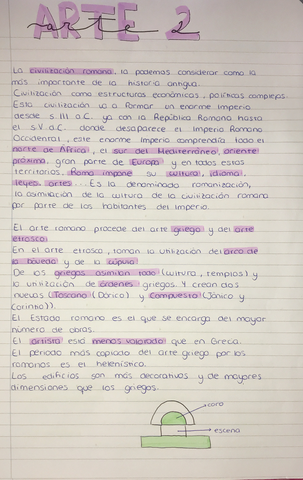 ARTE 2
arte
La civilización romana, la podemos considerar como la
más importante de la historia antigua.
Civilización como estructuras económicas, políticas complejas.
Esta civilización va a formar un enorme Imperio
desde s.III a.C. ya con la República Romana hasta
el s.V a.C. donde desaparece el Imperio Romano
Occidental, este enorme Imperio comprendía todo el
norte de África, el sur del Mediterráneo, oriente
próximo, gran parte de Europa y en todos estos
territorios, Roma impone su cultura, idioma,
leyes, artes... Es la denominada romanización,
la asimilación de la cultura de la civilización romana
por parte de los habitantes del Imperio.
El arte romano procede del arte griego y del arte
etrosco.
En el arte etrosco, toman la utilización del arco de
la bóveda y de la cúpula.
De los griegos asimilan todo (cultura, templos) y
la utilización de órdenes griegos. Y crean dos
nuevos (Toscano (Dórico) y Compuesto (Jónico y
Corintio)).
El Estado romano es el que se encarga del mayor
número de obras.
El artista está menos valorado que en Grecia.
El período más copiado del arte griego por los
romanos es el helenístico.
Los edificios son más decorativos y de mayores
dimensiones que los griegos.
coro
escena